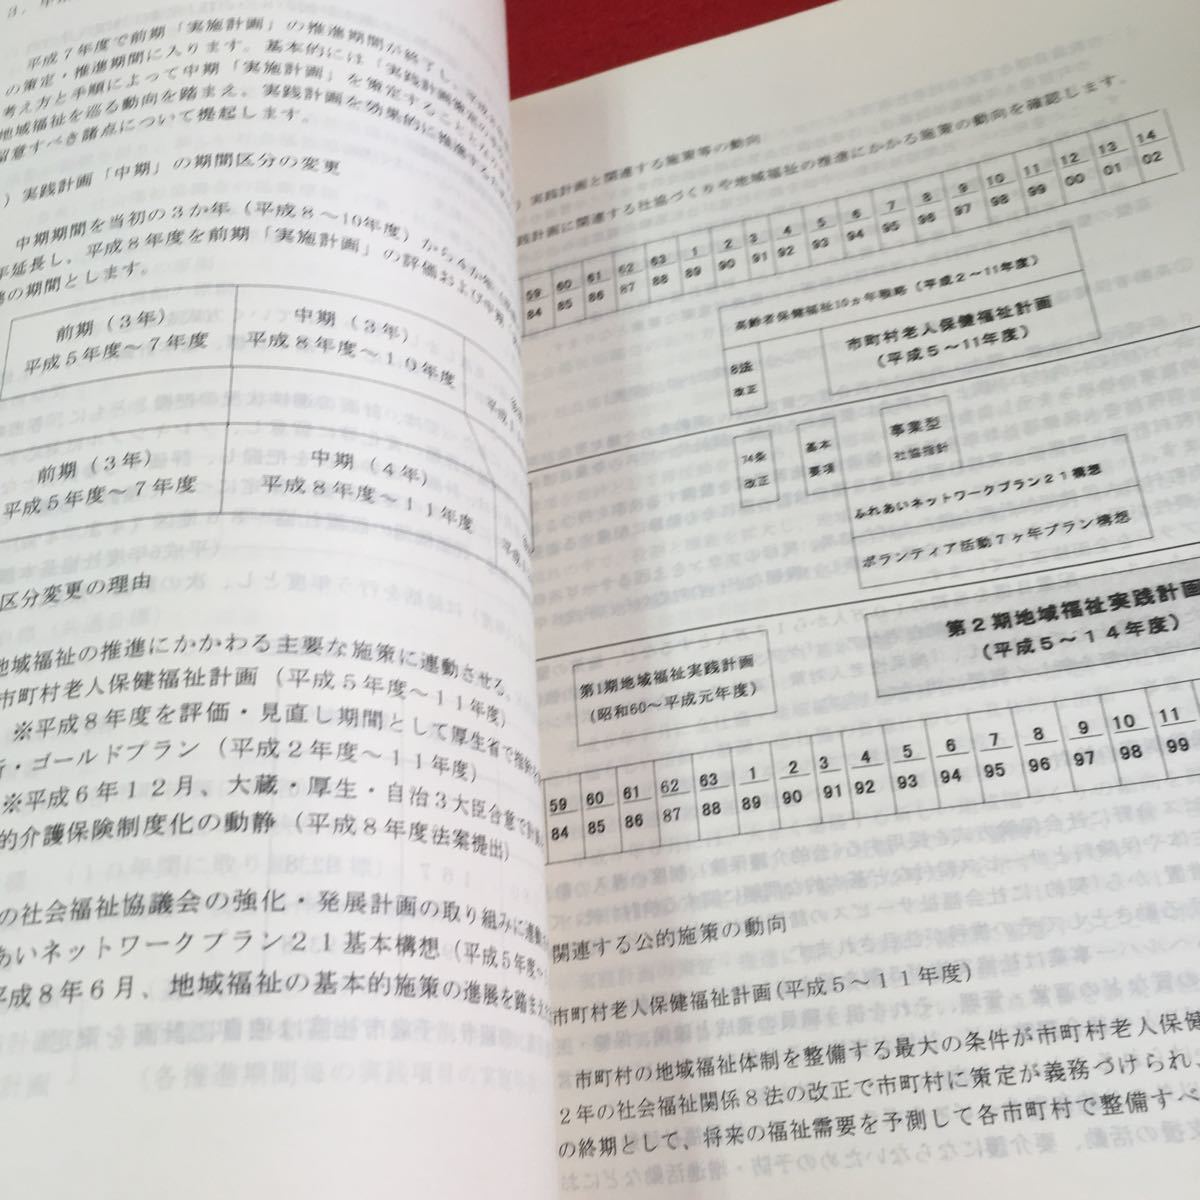 平成7年度で前期「実施計画」の推進期間が終了し、
の策定・推進期間に入ります。基本的には「実践計画
考え方と手順によって中期「実施計画」を策定すること
地域福祉を巡る動向を踏まえ、実践計画を効果的に推進する
留意すべき諸点について提起します。
)実践計画「中期」の期間区分の変更
中期期間を当初の3か年(平成8~10年度)から4か年
年延長し、平成8年度を前期「実施計画」の評価および
の期間とします。
前期(3年)
平成5年度~7年度
中期(3年)
平成8年度~10年度
前期(3年)
平成5年度~7年度
中期(4年)
平成8年度~11年度
区分変更の理由
地域福祉の推進にかかわる主要な施策に連動させる。
市町村老人保健福祉計画(平成5年度~11年度)
※平成8年度を評価・見直し期間として厚生省で
・ゴールドプラン(平成2年度~11年度)
※平成6年12月、大蔵・厚生・自治3大臣合意で
的介護保険制度化の動静(平成8年度法案提出)
の社会福祉協議会の強化・発展計画の取り組みに連動
あいネットワークプラン21基本構想(平成5年度~
平成8年6月、地域福祉の基本的施策の進展を踏ま
)実践計画と関連する施策等の動向
践計画に関連する社協づくりや地域福祉の推進にかかる施策の動向を確認します。
59 60 61 62 63 1 2 3 4 5 6 7 8 9 10 11 12 13 14
84 85 86 87 88 89 90 91 92 93 94 95 96 97 98 99 00 01 02
高齢者保健福祉10ヵ年戦略(平成2~11年度)
8法
改正
市町村老人保健福祉計画
(平成5~11年度)
74条
改正
基本
要項
事業型
社協指針
ふれあいネットワークプラン21構想
ボランティア活動7ヶ年プラン構想
第1期地域福祉実践計画
(昭和60~平成元年度)
第2期地域福祉実践計画
(平成5~14年度)
59 60 61 62 63 1 2 3 4 5 6 7 8 9 10 11
84 85 86 87 88 89 90 91 92 93 94 95 96 97 98 99
関連する公的施策の動向
市町村老人保健福祉計画(平成5~11年度)
市町村の地域福祉体制を整備する最大の条件が市町村老人保健
2年の社会福祉関係8法の改正で市町村に策定が義務づけられ、
の終期として、将来の福祉需要を予測して各市町村で整備すべ